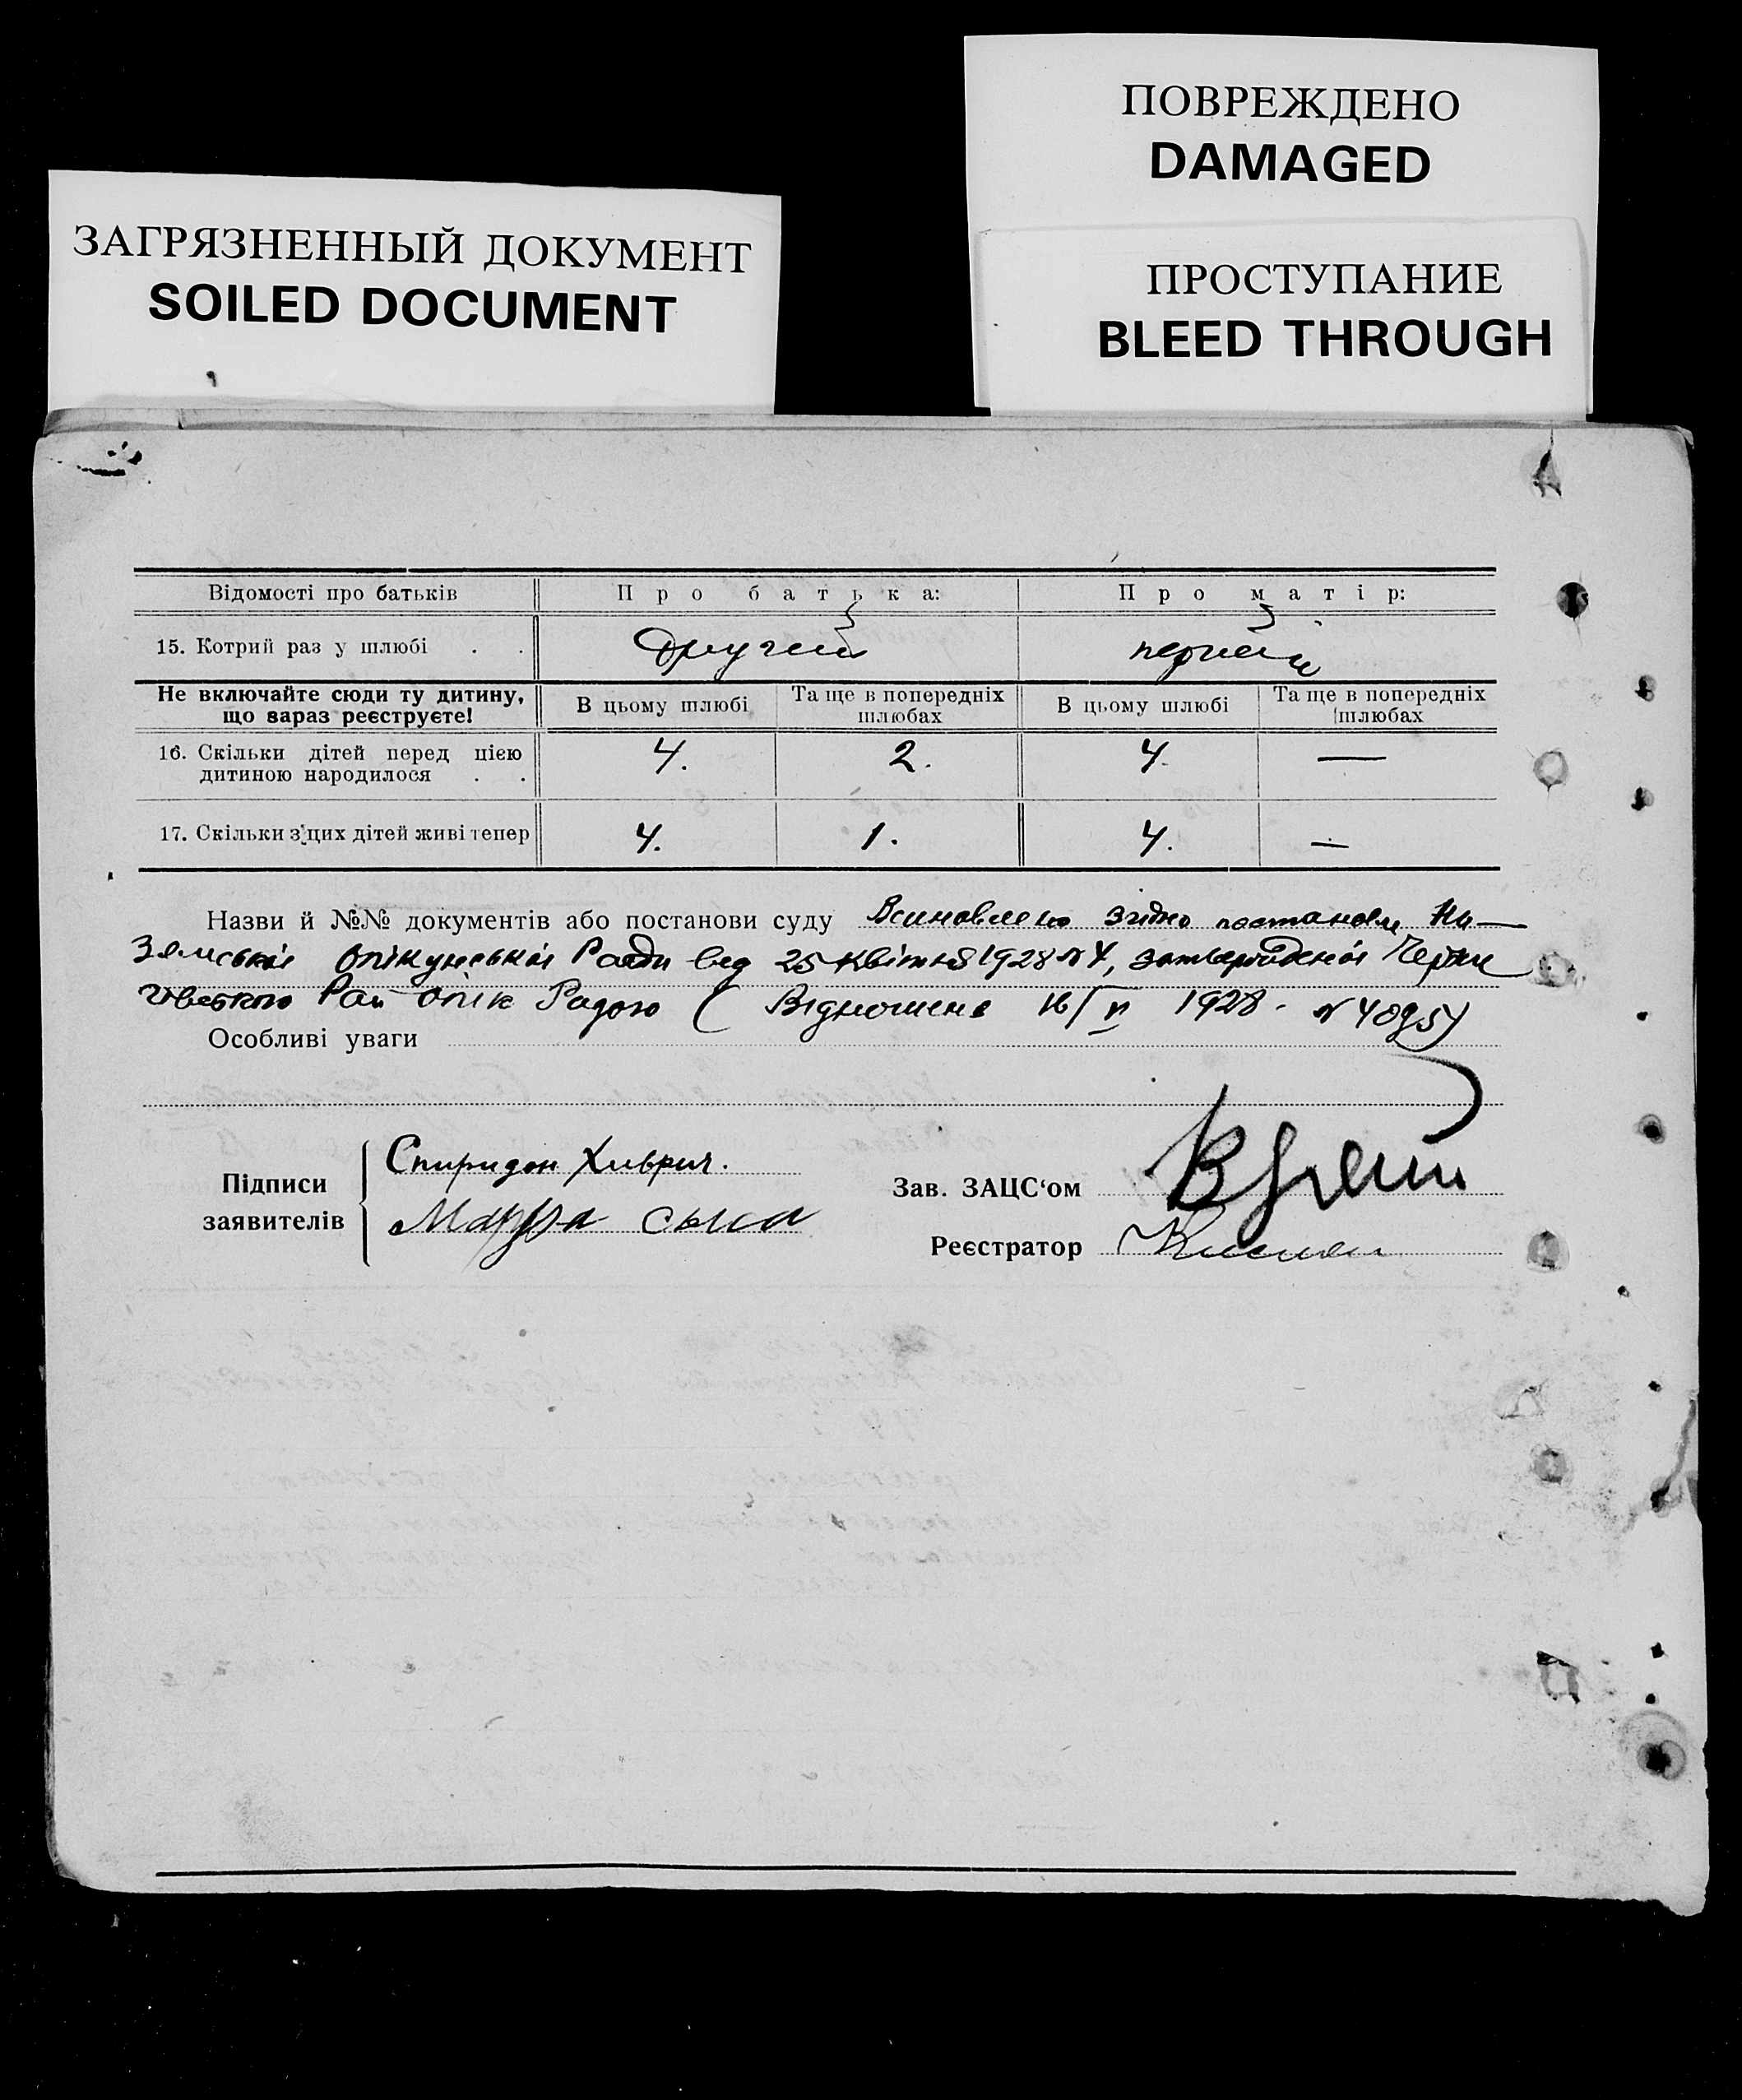 ПОВРЕЖДЕНО
DAMAGED
ЗАГРЯЗНЕННЫЙ ДОКУМЕНТ
SOILED DOCUMENT
ПРОСТУПАНИЕ
BLEED THROUGH
Відомості про батьків Про батька: Про матір:
15. Котрий раз у шлюбі . .
Не включайте сюди ту дитину, що вараз реєструєте! В цьому шлюбі Та ще в попередніх шлюбах В цьому шлюбі Та ще в попередніх шлюбах
16. Скільки дітей перед цією дитиною народилося . . 4. 2. 4. —
17. Скільки з цих дітей живі тепер 4. 1. 4. —
Назви й №№ документів або постанови суду Всиновлено згідно постанови
Опікунської Ради від 25 квітня 1928 №4, затвердженої
Рай опік Радою ( Відношення 1928 -
Особливі уваги
Підписи заявителів
Спиридон Хиврич.
Марфа
Зав. ЗАЦС‘ом
Реєстратор